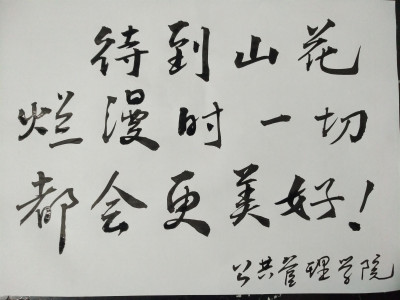 待到山花
烂漫时一切
都会更美好！
公共管理学院